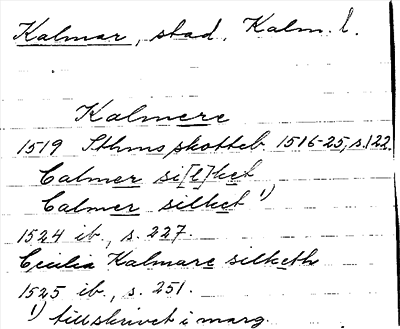 Kalmar, stad. Kalm. l.
Kalmere
1519 Sthms skotteb. 1516-25, s. 122.
Calmer si[l]ket
Calmer silket 1)
1524 ib., s. 227.
Cecilia Kalmare silketh
1525 ib., s. 251.
1) tillskrivet i marg.